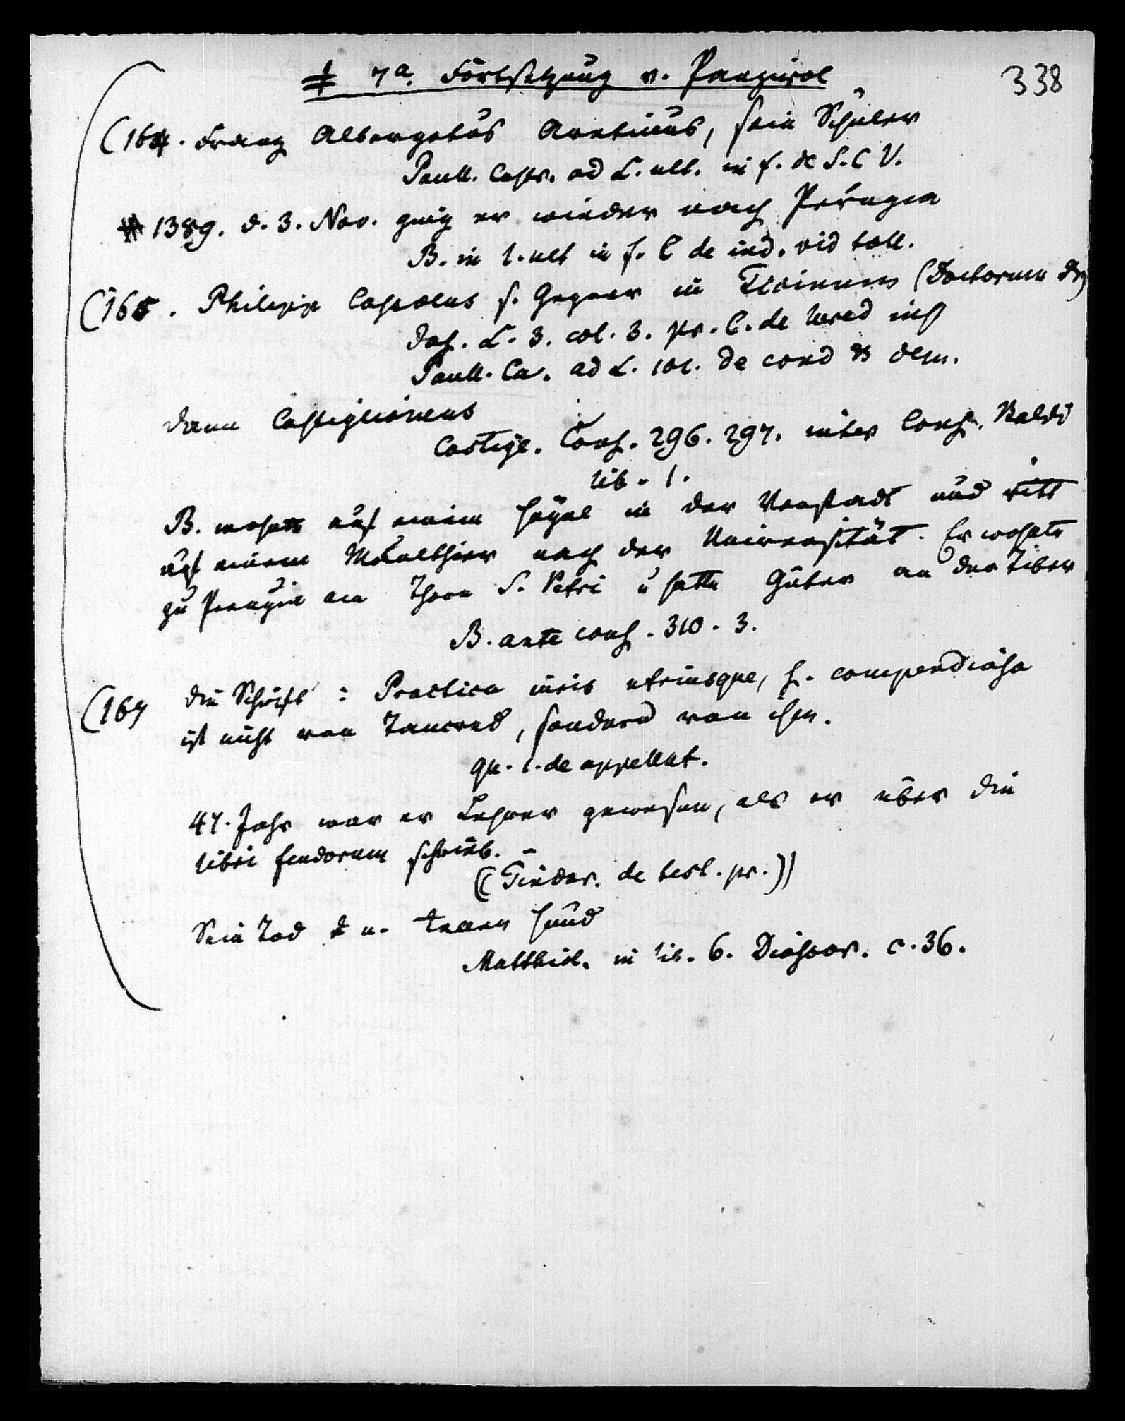 ‡ 7a. Fortsetzung v. Panzirol
338
(164. Franz Albergotus Aretinus, sein Schüler
Paull. Castr. ad L. ult. in f. de S. C V.
# 1389. d. 3. Nov. ging er wieder nach Perugia
B. in l. ult in f. C de ind. vid toll.
(165. Philipp Cassolus s. Gegner in Ticinum (Doctorum
Jas. L. 3. col. 3. pr. C. de
Paull. Ca. ad L. 101. de cond & dem.
dann Castiglioneus
Castigl. Cons. 296. 297. inter Cons. Baldi
lib. 1.
B. wohnte auf einem Hügel in der Vorstadt und ritt
auf einem Maulthier nach der Universität. Er wohnte
zu Perugia am Thore S. Petri u hatte Güter an der Tiber
B. ante cons. 310. 3.
(167 die Schrift: Practica iuris utriusque, s. compendiosa
ist nicht von Tancred, sondern von ihm.
qu. 1. de appellat.
47. Jahr war er Lehrer gewesen, als er über die
libri feudorum schrieb.
((Tindar. de test. pr.))
Sein Tod & u. Hund
Matthiol. in lib. 6. Dioscor. c. 36.